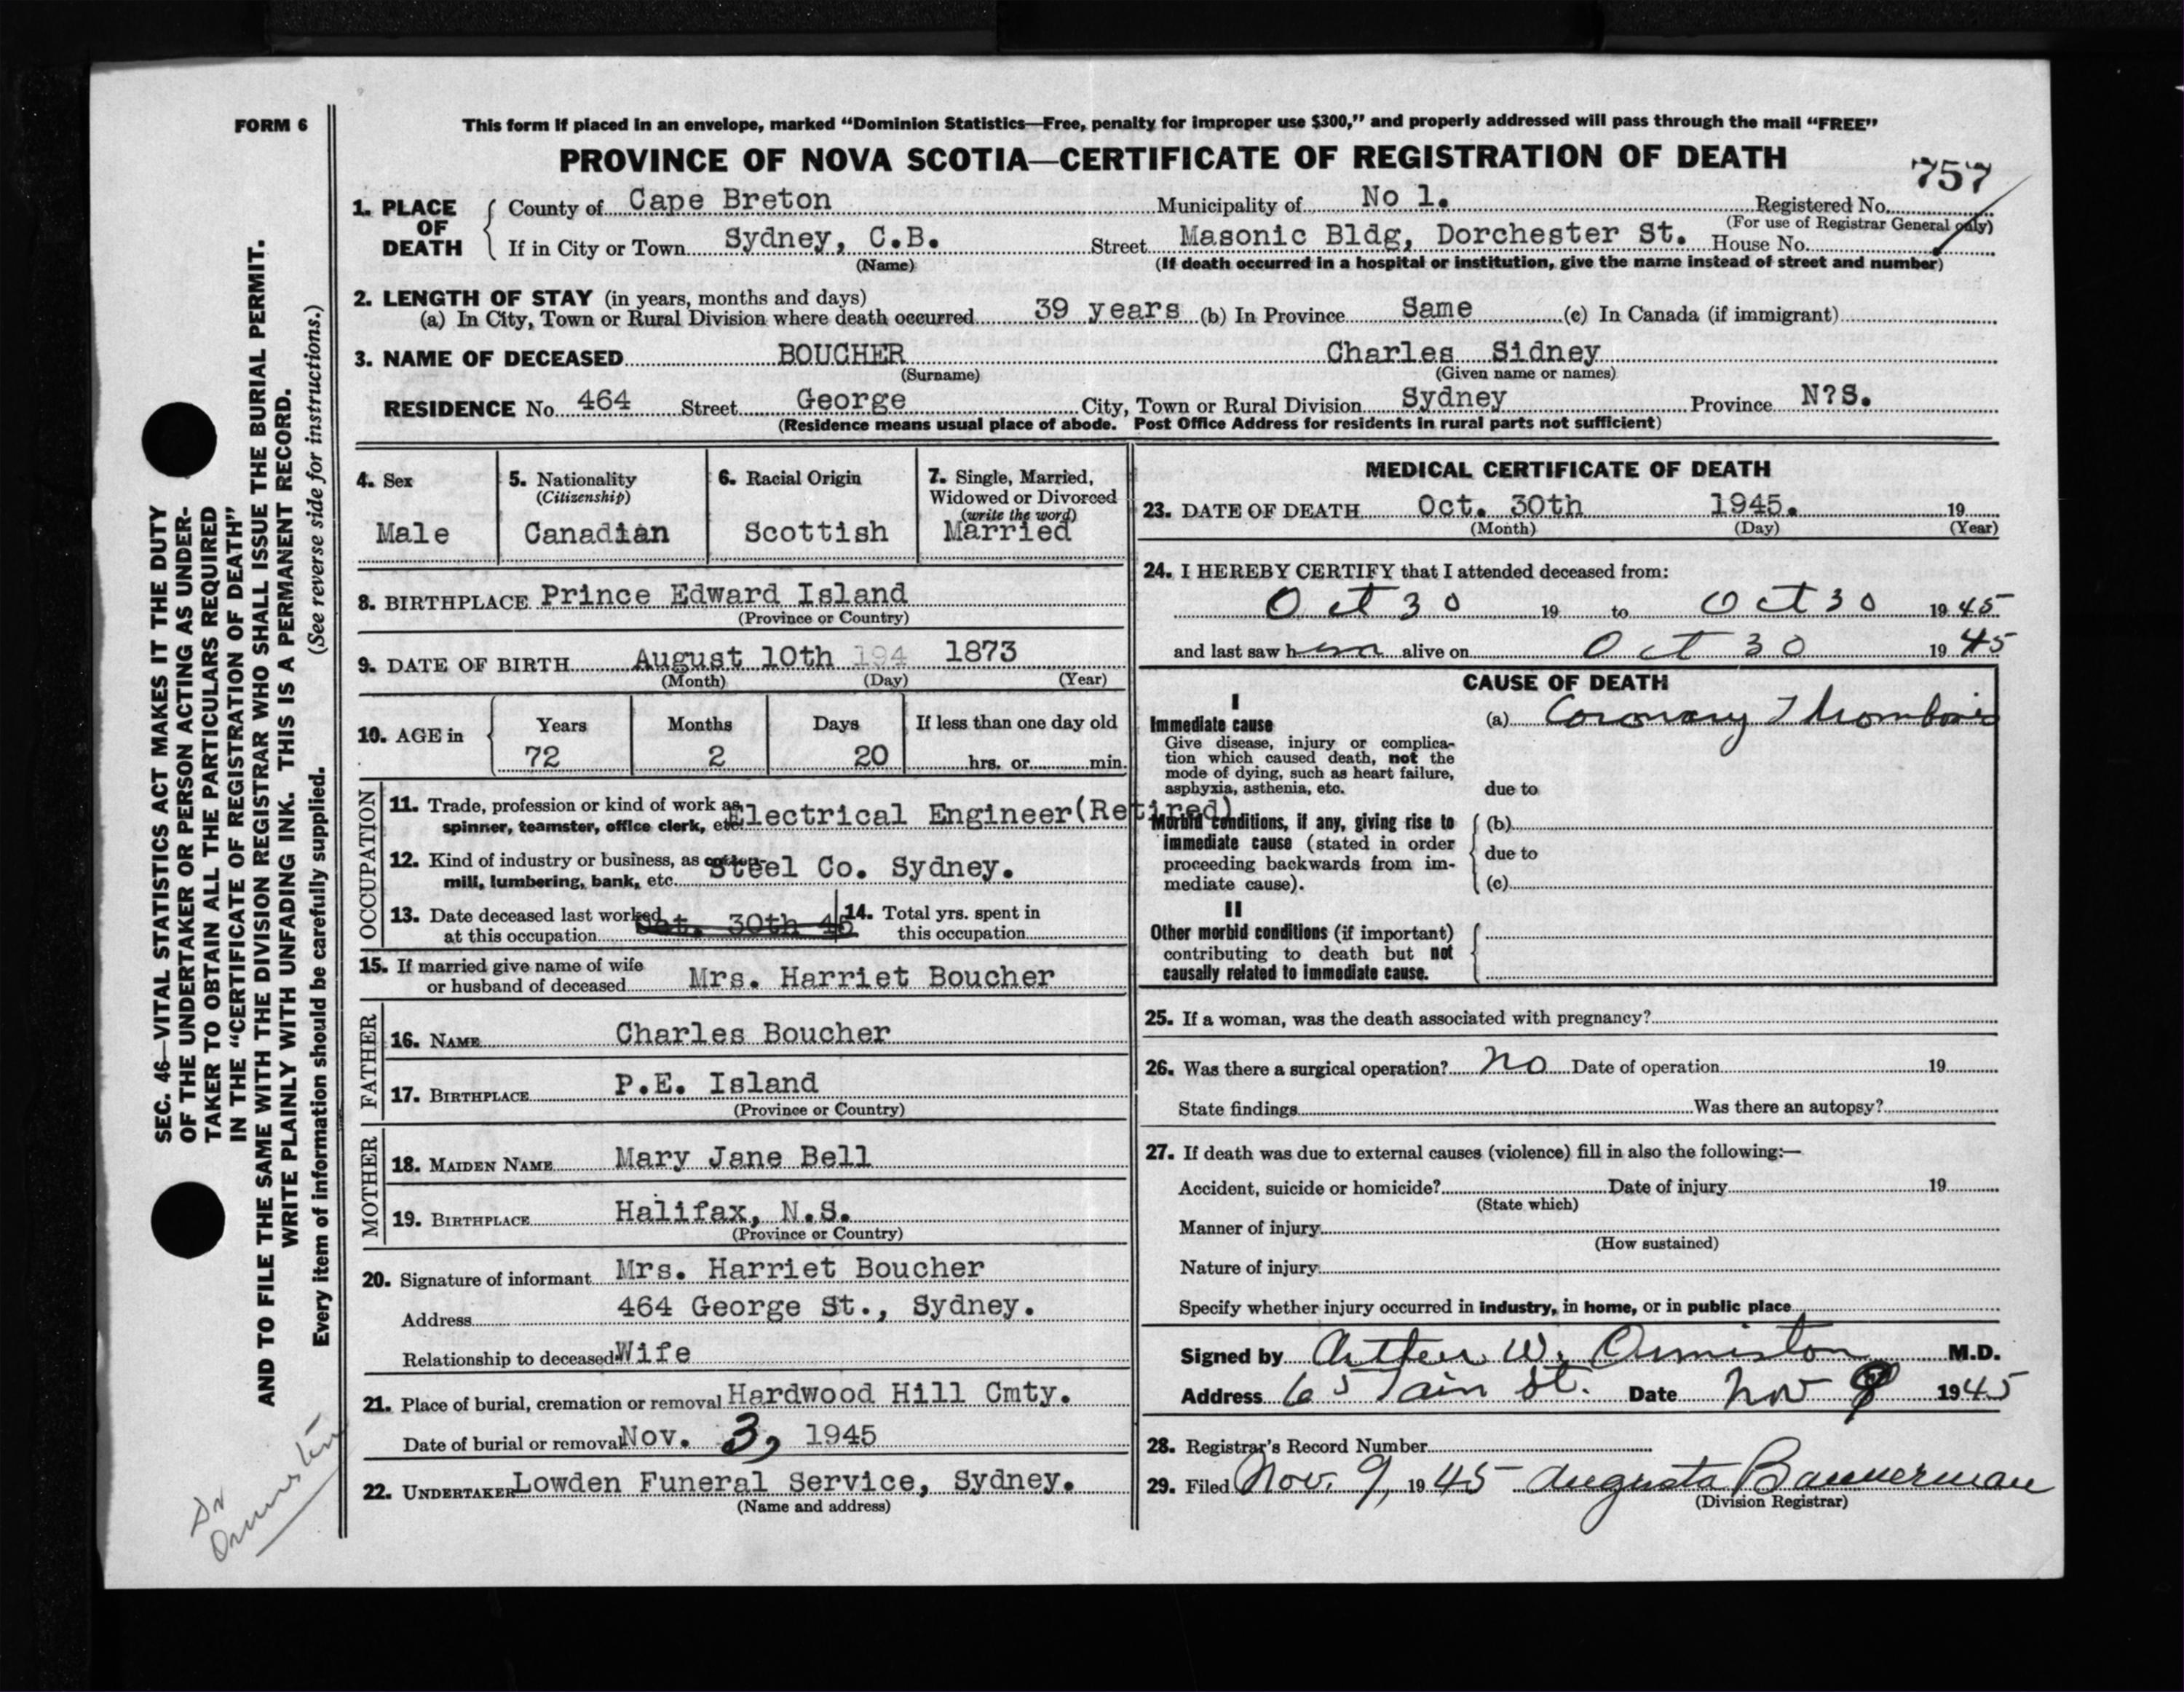 FORM 6
This form if placed in an envelope, marked “Dominion Statistics—Free, penalty for improper use $300,” and properly addressed will pass through the mail “FREE”
PROVINCE OF NOVA SCOTIA—CERTIFICATE OF REGISTRATION OF DEATH
757
1. PLACE OF DEATH
County of Cape Breton Municipality of No 1. Registered No.
(For use of Registrar General only)
If in City or Town Sydney, C.B. Street Masonic Bldg, Dorchester St. House No.
(Name) (If death occurred in a hospital or institution, give the name instead of street and number)
2. LENGTH OF STAY (in years, months and days)
(a) In City, Town or Rural Division where death occurred 39 years (b) In Province Same (c) In Canada (if immigrant)
3. NAME OF DECEASED BOUCHER Charles Sidney
(Surname) (Given name or names)
RESIDENCE No. 464 Street George City, Town or Rural Division Sydney Province N?S.
(Residence means usual place of abode. Post Office Address for residents in rural parts not sufficient)
4. Sex
Male
5. Nationality
(Citizenship)
Canadian
6. Racial Origin
Scottish
7. Single, Married,
Widowed or Divorced
(write the word)
Married
8. BIRTHPLACE Prince Edward Island
(Province or Country)
9. DATE OF BIRTH August 10th 194 1873
(Month) (Day) (Year)
10. AGE in
Years Months Days If less than one day old
72 2 20 hrs. or min.
OCCUPATION
11. Trade, profession or kind of work as
spinner, teamster, office clerk, etc. Electrical Engineer(Retired)
12. Kind of industry or business, as cotton-
mill, lumbering, bank, etc. Steel Co. Sydney.
13. Date deceased last worked
at this occupation Oct. 30th 45
14. Total yrs. spent in
this occupation
15. If married give name of wife
or husband of deceased Mrs. Harriet Boucher
FATHER
16. NAME Charles Boucher
17. BIRTHPLACE P.E. Island
(Province or Country)
MOTHER
18. MAIDEN NAME Mary Jane Bell
19. BIRTHPLACE Halifax, N.S.
(Province or Country)
20. Signature of informant Mrs. Harriet Boucher
Address 464 George St., Sydney.
Relationship to deceased Wife
21. Place of burial, cremation or removal Hardwood Hill Cmty.
Date of burial or removal Nov. 3, 1945
22. UNDERTAKER Lowden Funeral Service, Sydney.
(Name and address)
MEDICAL CERTIFICATE OF DEATH
23. DATE OF DEATH Oct. 30th 1945. 19
(Month) (Day) (Year)
24. I HEREBY CERTIFY that I attended deceased from:
Oct 30 19 to Oct 30 1945
and last saw him alive on Oct 30 1945
CAUSE OF DEATH
I
Immediate cause
Give disease, injury or complica-
tion which caused death, not the
mode of dying, such as heart failure,
asphyxia, asthenia, etc.
(a) Coronary Thrombosis
due to
Morbid conditions, if any, giving rise to
immediate cause (stated in order
proceeding backwards from im-
mediate cause).
(b)
due to
(c)
II
Other morbid conditions (if important)
contributing to death but not
causally related to immediate cause.
25. If a woman, was the death associated with pregnancy?
26. Was there a surgical operation? No Date of operation 19
State findings Was there an autopsy?
27. If death was due to external causes (violence) fill in also the following:—
Accident, suicide or homicide? Date of injury 19
(State which)
Manner of injury
(How sustained)
Nature of injury
Specify whether injury occurred in industry, in home, or in public place
Signed by Arthur W. Ormiston M.D.
Address 65 St. Date Nov 1945
28. Registrar's Record Number
29. Filed Nov. 9, 1945 Augusta Bannerman
(Division Registrar)
SEC. 46—VITAL STATISTICS ACT MAKES IT THE DUTY
OF THE UNDERTAKER OR PERSON ACTING AS UNDER-
TAKER TO OBTAIN ALL THE PARTICULARS REQUIRED
IN THE “CERTIFICATE OF REGISTRATION OF DEATH”
AND TO FILE THE SAME WITH THE DIVISION REGISTRAR WHO SHALL ISSUE THE BURIAL PERMIT.
WRITE PLAINLY WITH UNFADING INK. THIS IS A PERMANENT RECORD.
Every item of information should be carefully supplied. (See reverse side for instructions.)
Dr
Ormiston